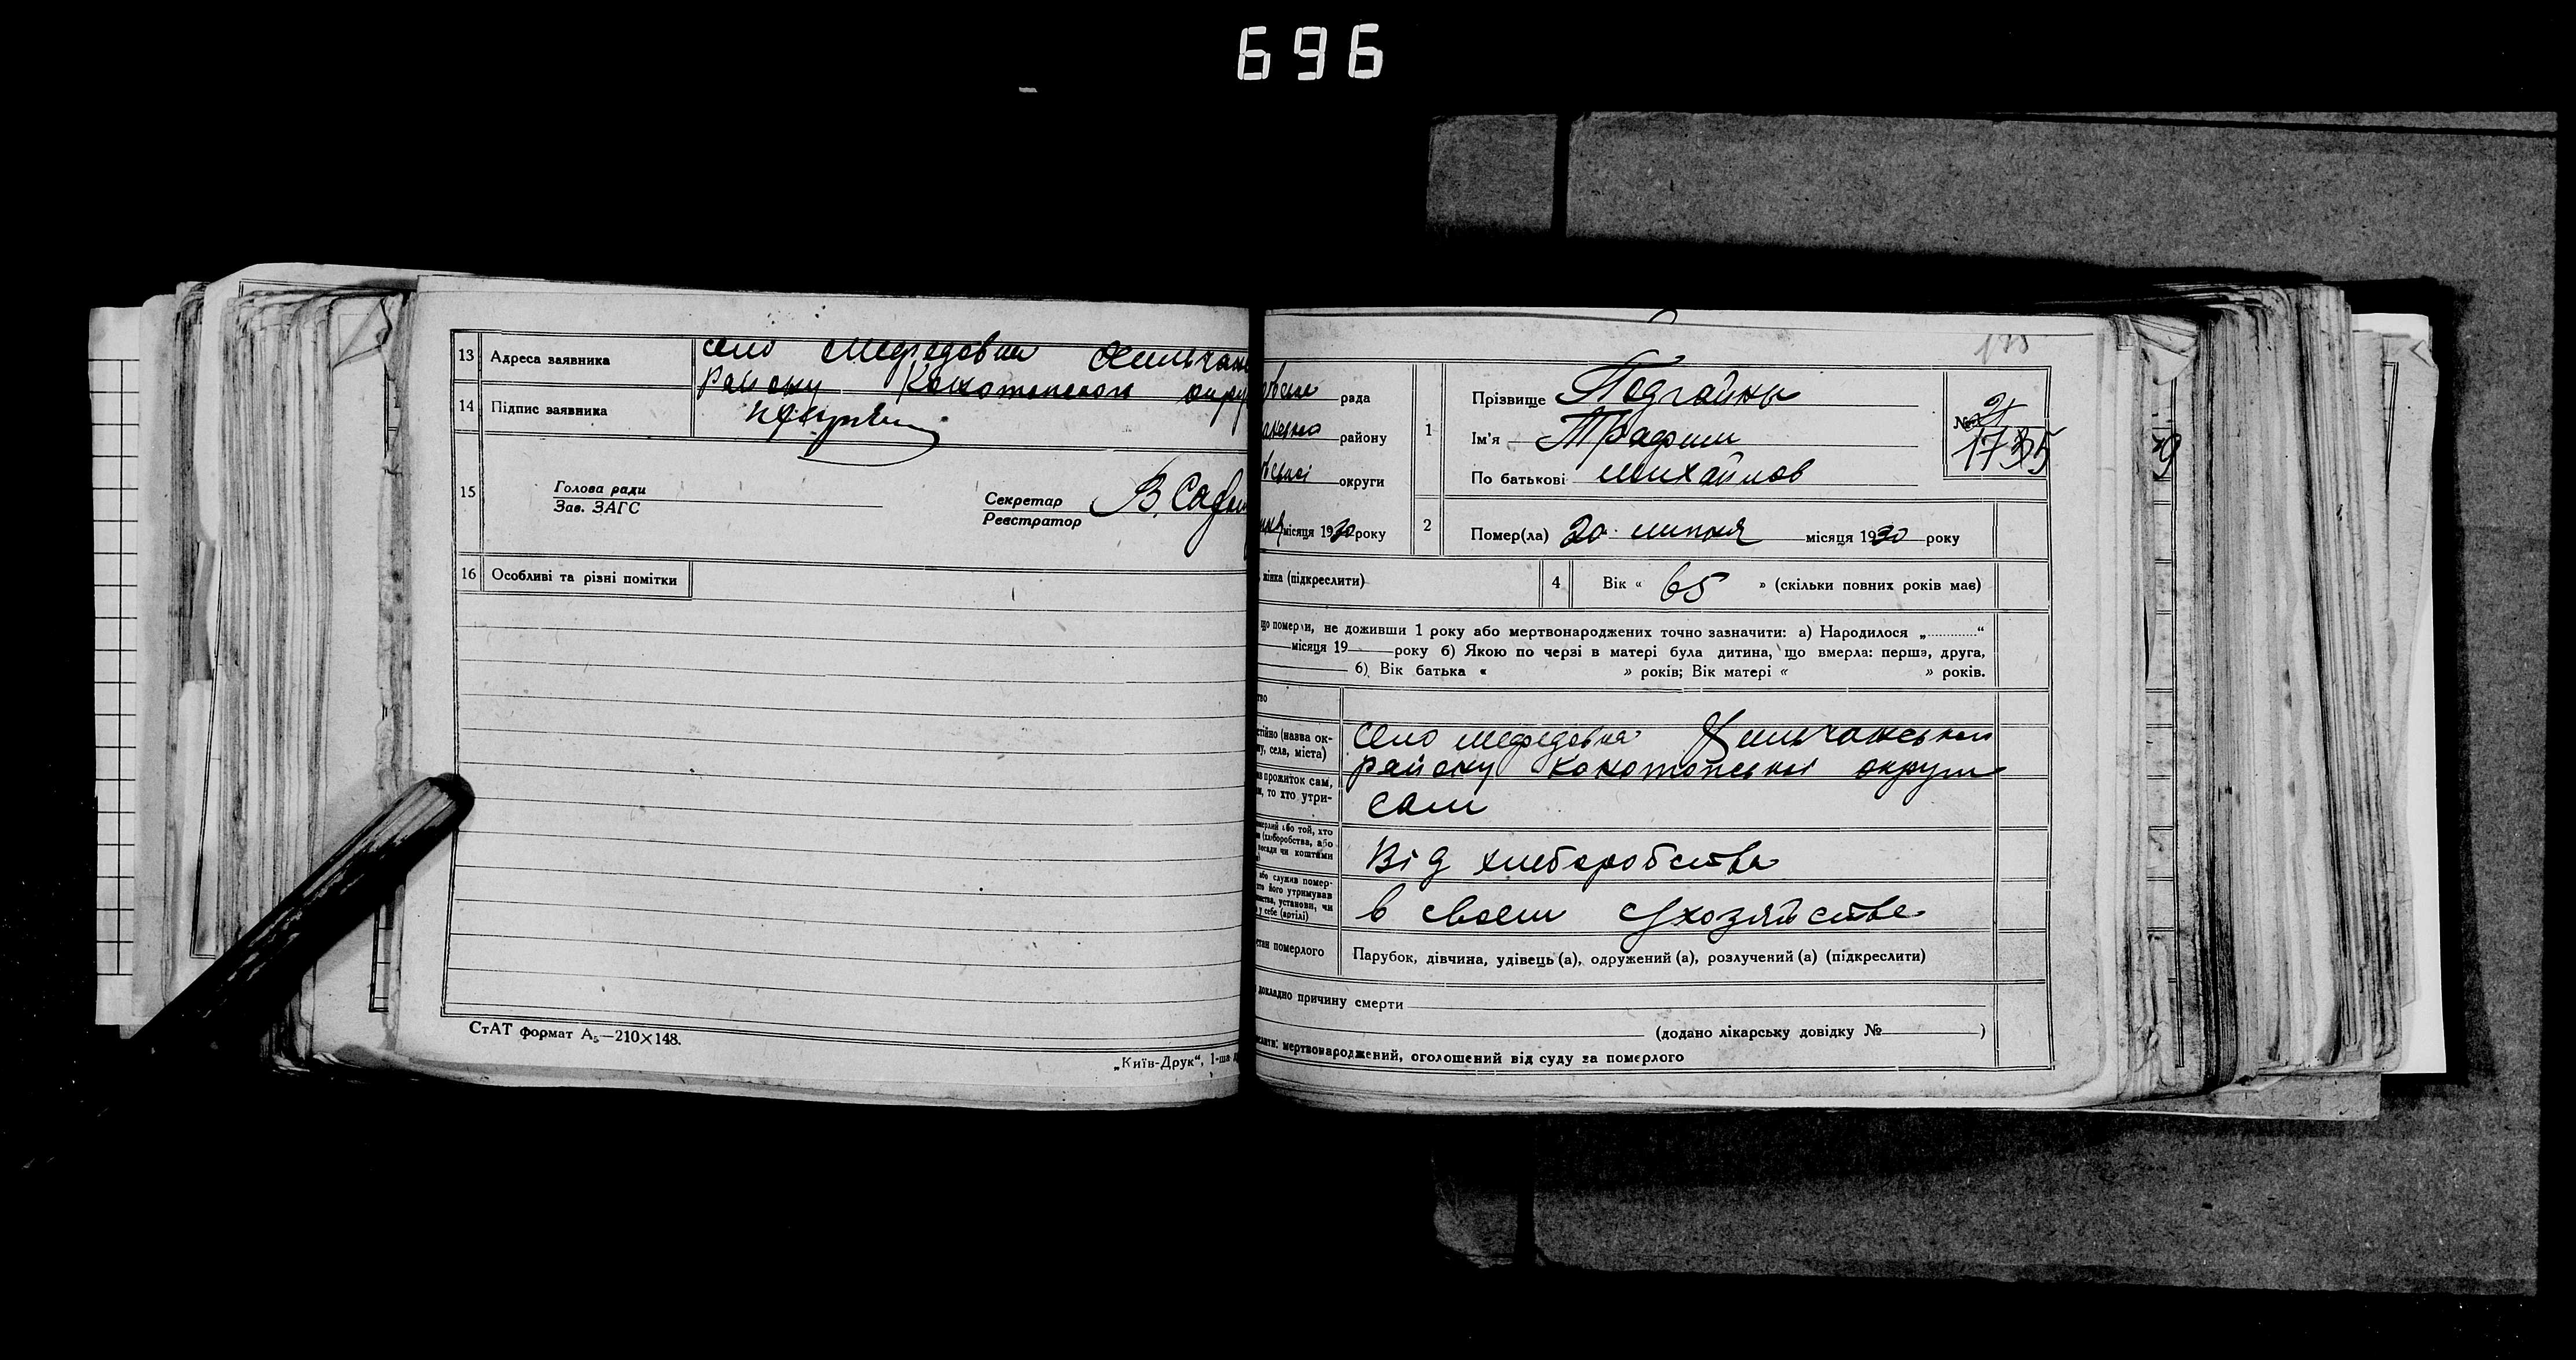 696
13 Адреса заявника село Мефедовка Хильчан
району Конотопской окру
14 Підпис заявника
15 Голова ради
Зав. ЗАГС
Секретар
Реєстратор
16 Особливі та різні помітки
СтАТ формат А₅—210×148.
„Київ-Друк“, 1-ша
рада
району
округи
місяця 1930 року
1 Прізвище Подгайны
Ім'я Трафим
По батькові Михайлов
№ 21
1735
2 Помер(ла) 20 липня місяця 1930 року
жінка (підкреслити)
4 Вік « 65 » (скільки повних років має)
що померли, не доживши 1 року або мертвонароджених точно зазначити: а) Народилося „.............“
місяця 19 року б) Якою по черзі в матері була дитина, що вмерла: перша, друга,
6) Вік батька « » років; Вік матері « » років.
тво
стійно (назва ок-
ну, села, міста)
село мефедовка Хильчанськои
району конотопської округи
прожиток сам,
то хто утри-
сам
або той, хто
(хліборобства, або
посади чи коштами
Від хлеборобства
або служив помер-
хто його утримував
установи, чи
у себе (артілі)
в своем хозяйстве
стан померлого
Парубок, дівчина, удівець (а), одружений (а), розлучений (а) (підкреслити)
докладно причину смерти
(додано лікарську довідку № )
мертвонароджений, оголошений від суду за померлого